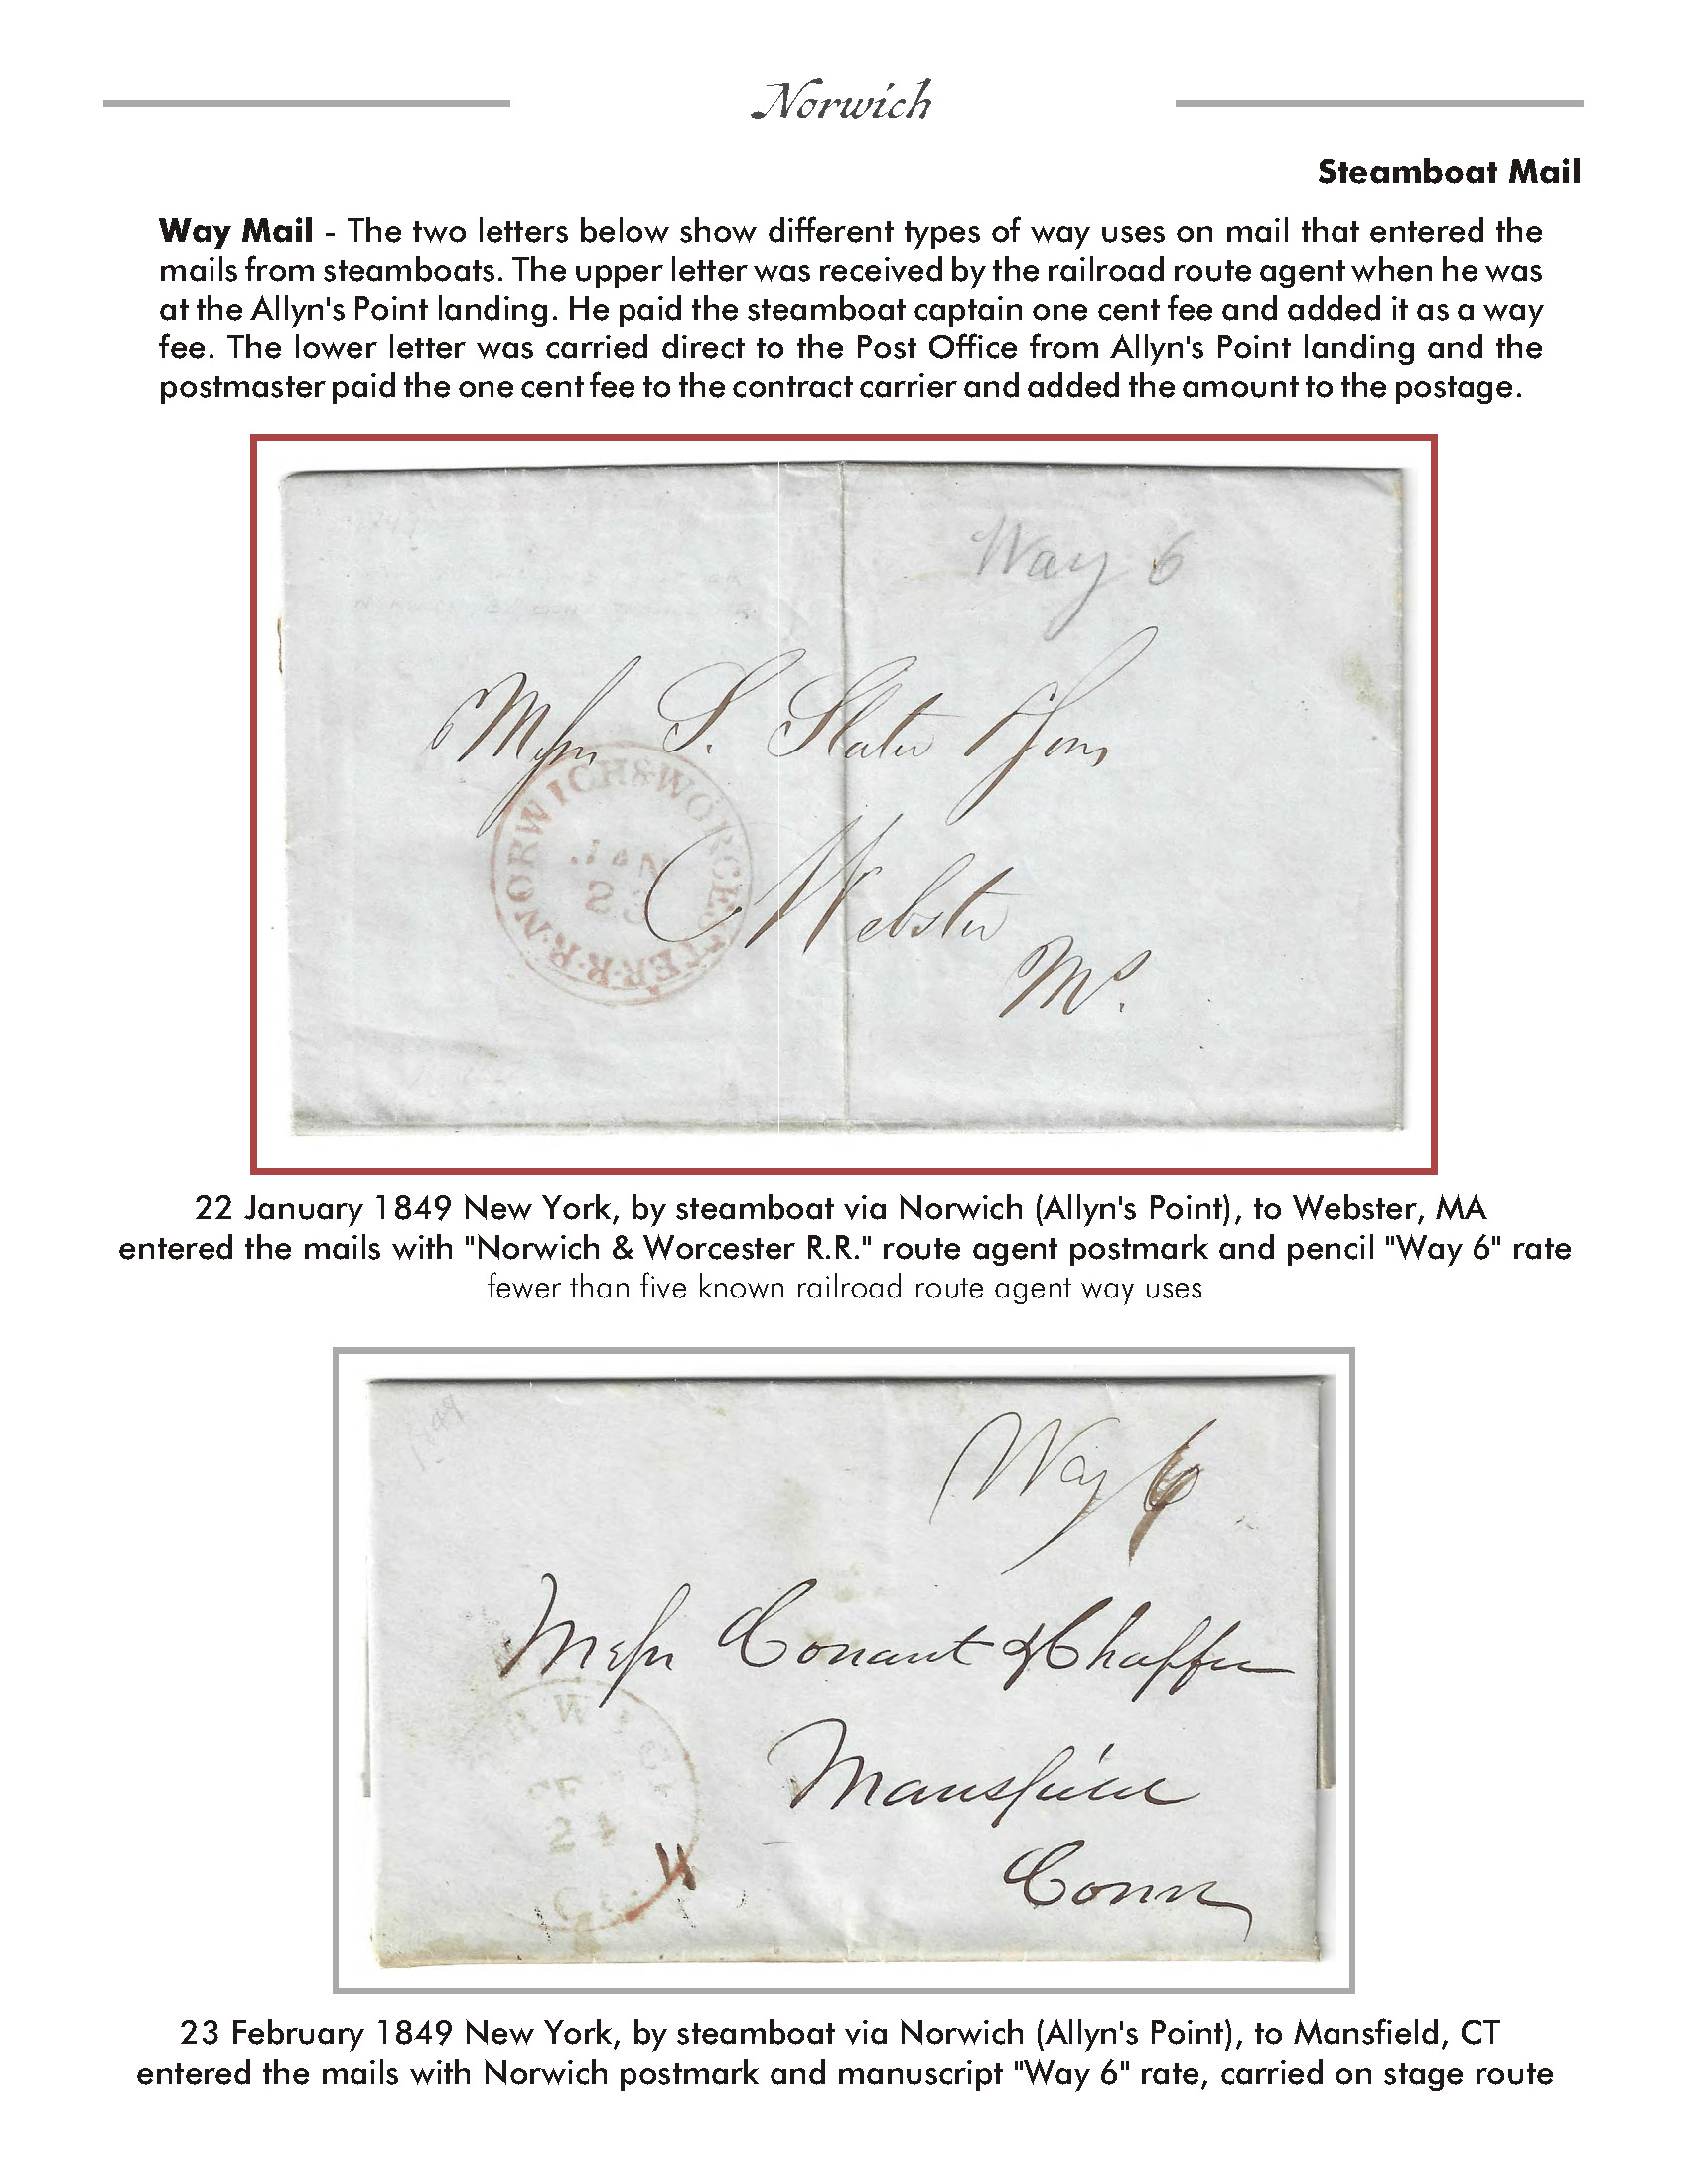 Norwich
Steamboat Mail
Way Mail - The two letters below show different types of way uses on mail that entered the
mails from steamboats. The upper letter was received by the railroad route agent when he was
at the Allyn's Point landing. He paid the steamboat captain one cent fee and added it as a way
fee. The lower letter was carried direct to the Post Office from Allyn's Point landing and the
postmaster paid the one cent fee to the contract carrier and added the amount to the postage.
Way 6
Messrs S. Slater & Sons
NORWICH & WORCESTER R.R.
JAN
23
Webster
Ms.
22 January 1849 New York, by steamboat via Norwich (Allyn's Point), to Webster, MA
entered the mails with "Norwich & Worcester R.R." route agent postmark and pencil "Way 6" rate
fewer than five known railroad route agent way uses
1849
Way 6
Messrs Conant & Chaffee
Mansfield
24
Conn
23 February 1849 New York, by steamboat via Norwich (Allyn's Point), to Mansfield, CT
entered the mails with Norwich postmark and manuscript "Way 6" rate, carried on stage route